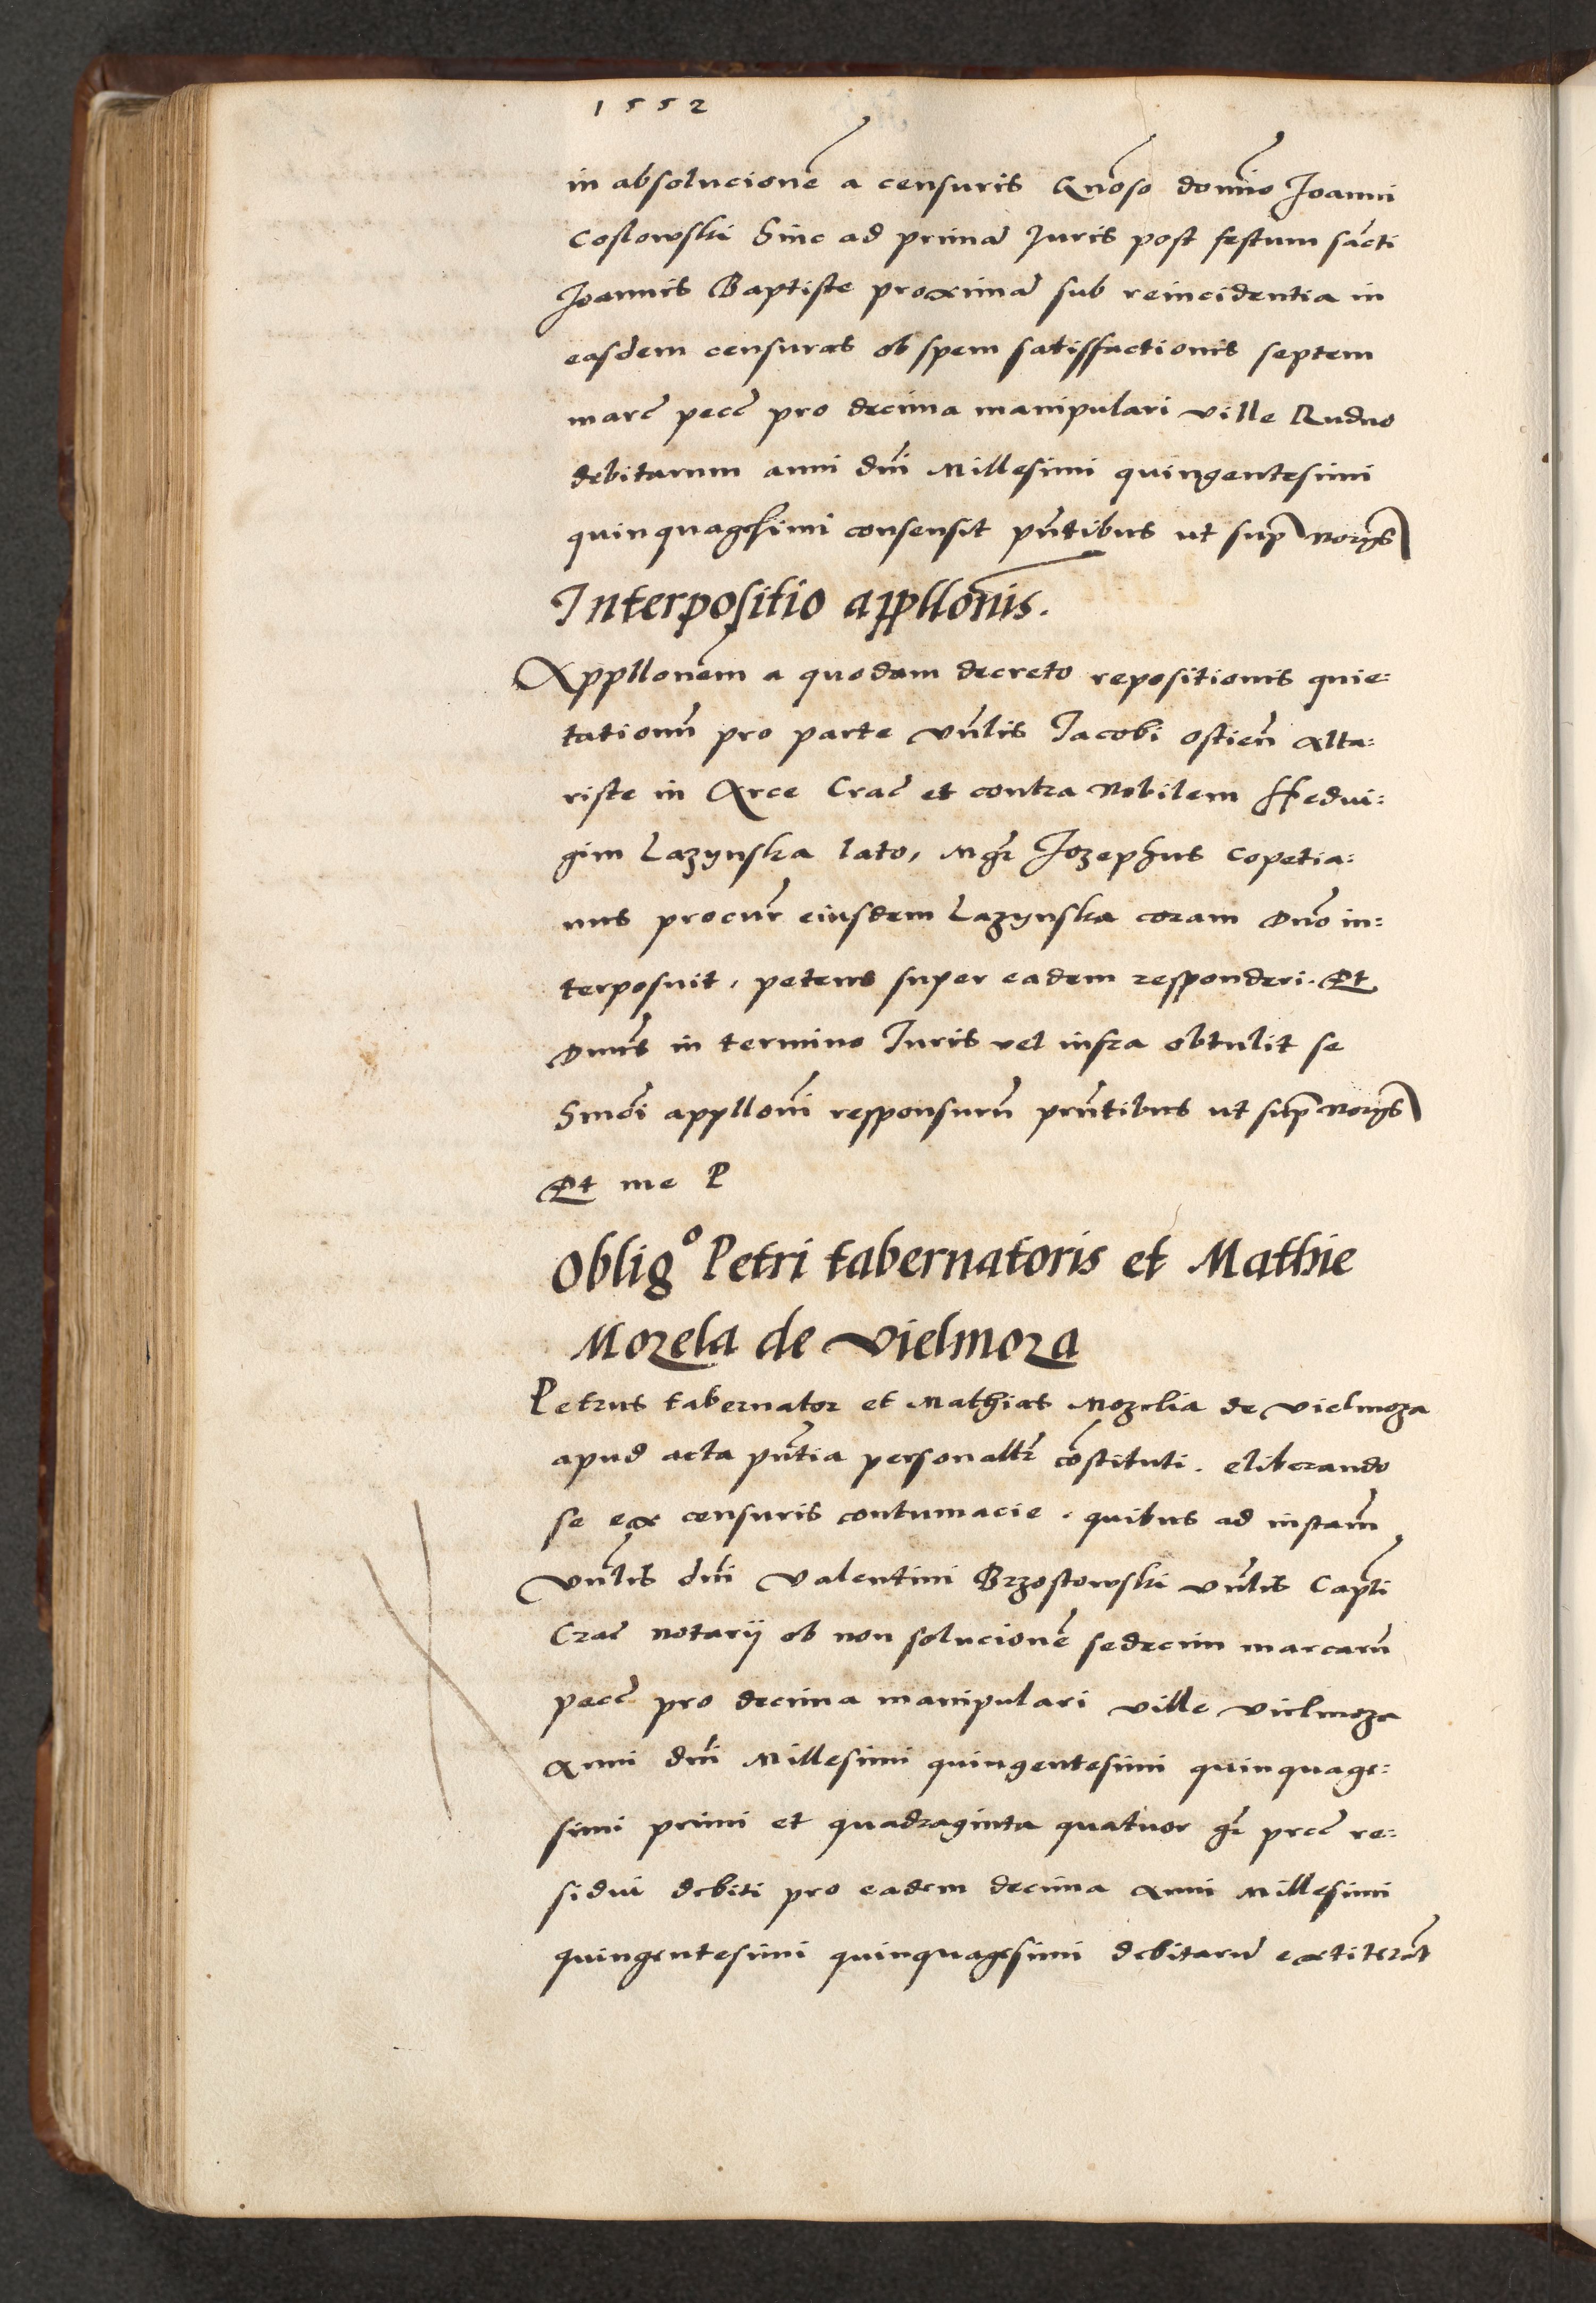 1552
in absolucionē a censuris Gn̄oso domīo Joanni
Coslowski hinc ad primā Juris post festum sācti
Joannis Baptiste proximā sub reincidentia in
easdem censuras ob spem satisffactionis septem
marc̄ pecc̄ pro decima manipulari ville Rudno
debitarum anni dn̄i Millesimi quingentesimi
quinquagesimi consensit pn̄tibus ut sup̄ norijs
Interpositio appllōnis.
Appllonēm a quodam decreto repositionis quie:
tationū pro parte vn̄lis Jacobi ostien̄ Alta:
riste in Arce Crac̄ et contra Nobilem Hedui:
gim Lazynska lato, Mgr̄ Jozephus Copetia:
nus procur̄ eiusdem Lazynska coram Dn̄o in:
terposuit, petens super eadem responderi. Et
Dn̄us in termino Juris vel infra obtulit se
hm̄oi appllonī responsurū prn̄tibus ut sup̄ norijs
Et me P
Obligº Petri tabernatoris et Mathie
Morela de Vielmoza
Petrus tabernator et Mathias Mozelia de Vielmoza
apud acta pn̄tia personaltr̄ cōstituti. eliberando
se ex censuris contumacie. quibus ad instām
vn̄lis dn̄i Valentini Brzostowski vn̄lis Capl̄i
Crac̄ notarij ob non solucionē sedecim marcarū
pecc̄ pro decima manipulari ville Vielmoza
Anni dn̄i Millesimi quingentesimi quinquage:
simi primi et quadraginta quatuor gr̄ pecc̄ re:
sidui debiti pro eadem decima Anni Millesimi
quingentesimi quinquagesimi debitarū extiterāt